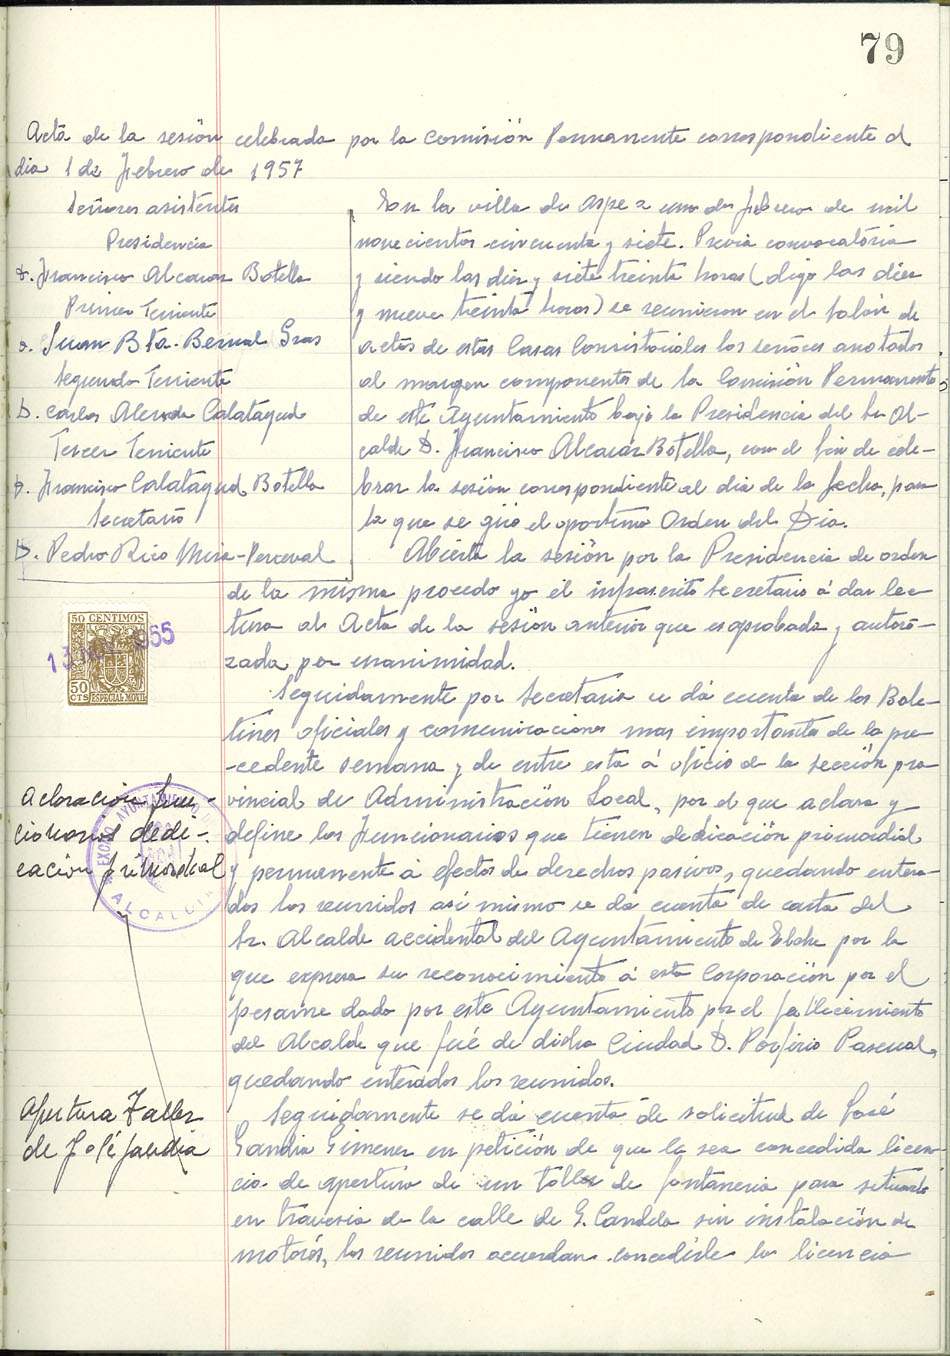 79
Acta de la sesión celebrada por la Comisión Permanente correspondiente el
dia 1 de Febrero de 1957
Señores asistentes
Presidencia
D. Francisco Alcaraz Botella
Primer Teniente
D. Juan Bta. Bernal Gras
Segundo Teniente
D. Carlos Alenda Calatayud
Tercer Teniente
D. Francisco Calatayud Botella
Secretario
D. Pedro Rico Mira-Perceval
En la villa de Aspe a uno de febrero de mil
novecientos cincuenta y siete. Previa convocatoria
y siendo las diez y siete treinta horas (digo las diez
y nueve treinta horas) se reunieron en el Salón de
actos de estas Casas Consistoriales los señores anotados
al margen componentes de la Comisión Permanente
de este Ayuntamiento bajo la Presidencia del Sr. Al-
calde D. Francisco Alcaraz Botella, con el fin de cele-
brar la sesión correspondiente al dia de la fecha, para
la que se giró el oportuno Orden del Dia.
Abierta la sesión por la Presidencia de orden
de la misma procedo yo el infrascrito Secretario á dar lec-
tura al Acta de la sesión anterior que es aprobada y autori-
zada por unanimidad.
Seguidamente por Secretaria se dá cuenta de los Bole-
tines oficiales y comunicaciones mas importantes de la pre-
-cedente semana y de entre esta á oficio de la sección pro-
vincial de Administración Local, por el que aclara y
define los Funcionarios que tienen dedicación primordial
y permanente á efectos de derechos pasivos, quedando entera-
dos los reunidos así mismo se da cuenta de carta del
Sr. Alcalde accidental del Ayuntamiento de Elche por la
que expresa su reconocimiento á esta Corporación por el
pesame dado por este Ayuntamiento por el fallecimiento
del Alcalde que fué de dicha Ciudad D. Porfirio Pascual,
quedando enterados los reunidos.
Seguidamente se dá cuenta de solicitud de José
Gandia Gimenez en petición de que le sea concedida licen-
cia de apertura de un taller de fontaneria para situarlo
en travesia de la calle de G. Candela sin instalación de
motores, los reunidos acuerdan concedirle la licencia
50 CENTIMOS
50 CTS
ESPECIAL MOVIL
Aclaración fun-
cionarios dedi-
cación primordial
EXCMO. AYUNTAMIENTO
ALCALDIA
Apertura Taller
de José Gandia